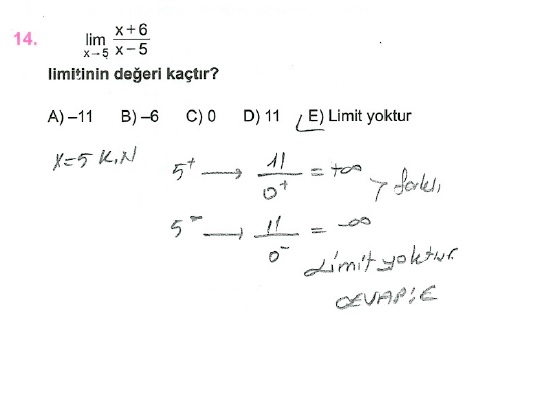 14. lim x→5 x+6 / x−5
limitinin değeri kaçtır?
A) −11 B) −6 C) 0 D) 11 E) Limit yoktur
x=5 K.N 5⁺ → 11/0⁺ = +∞
> farklı
5⁻ → 11/0⁻ = −∞
Limit yoktur.
CEVAP: E